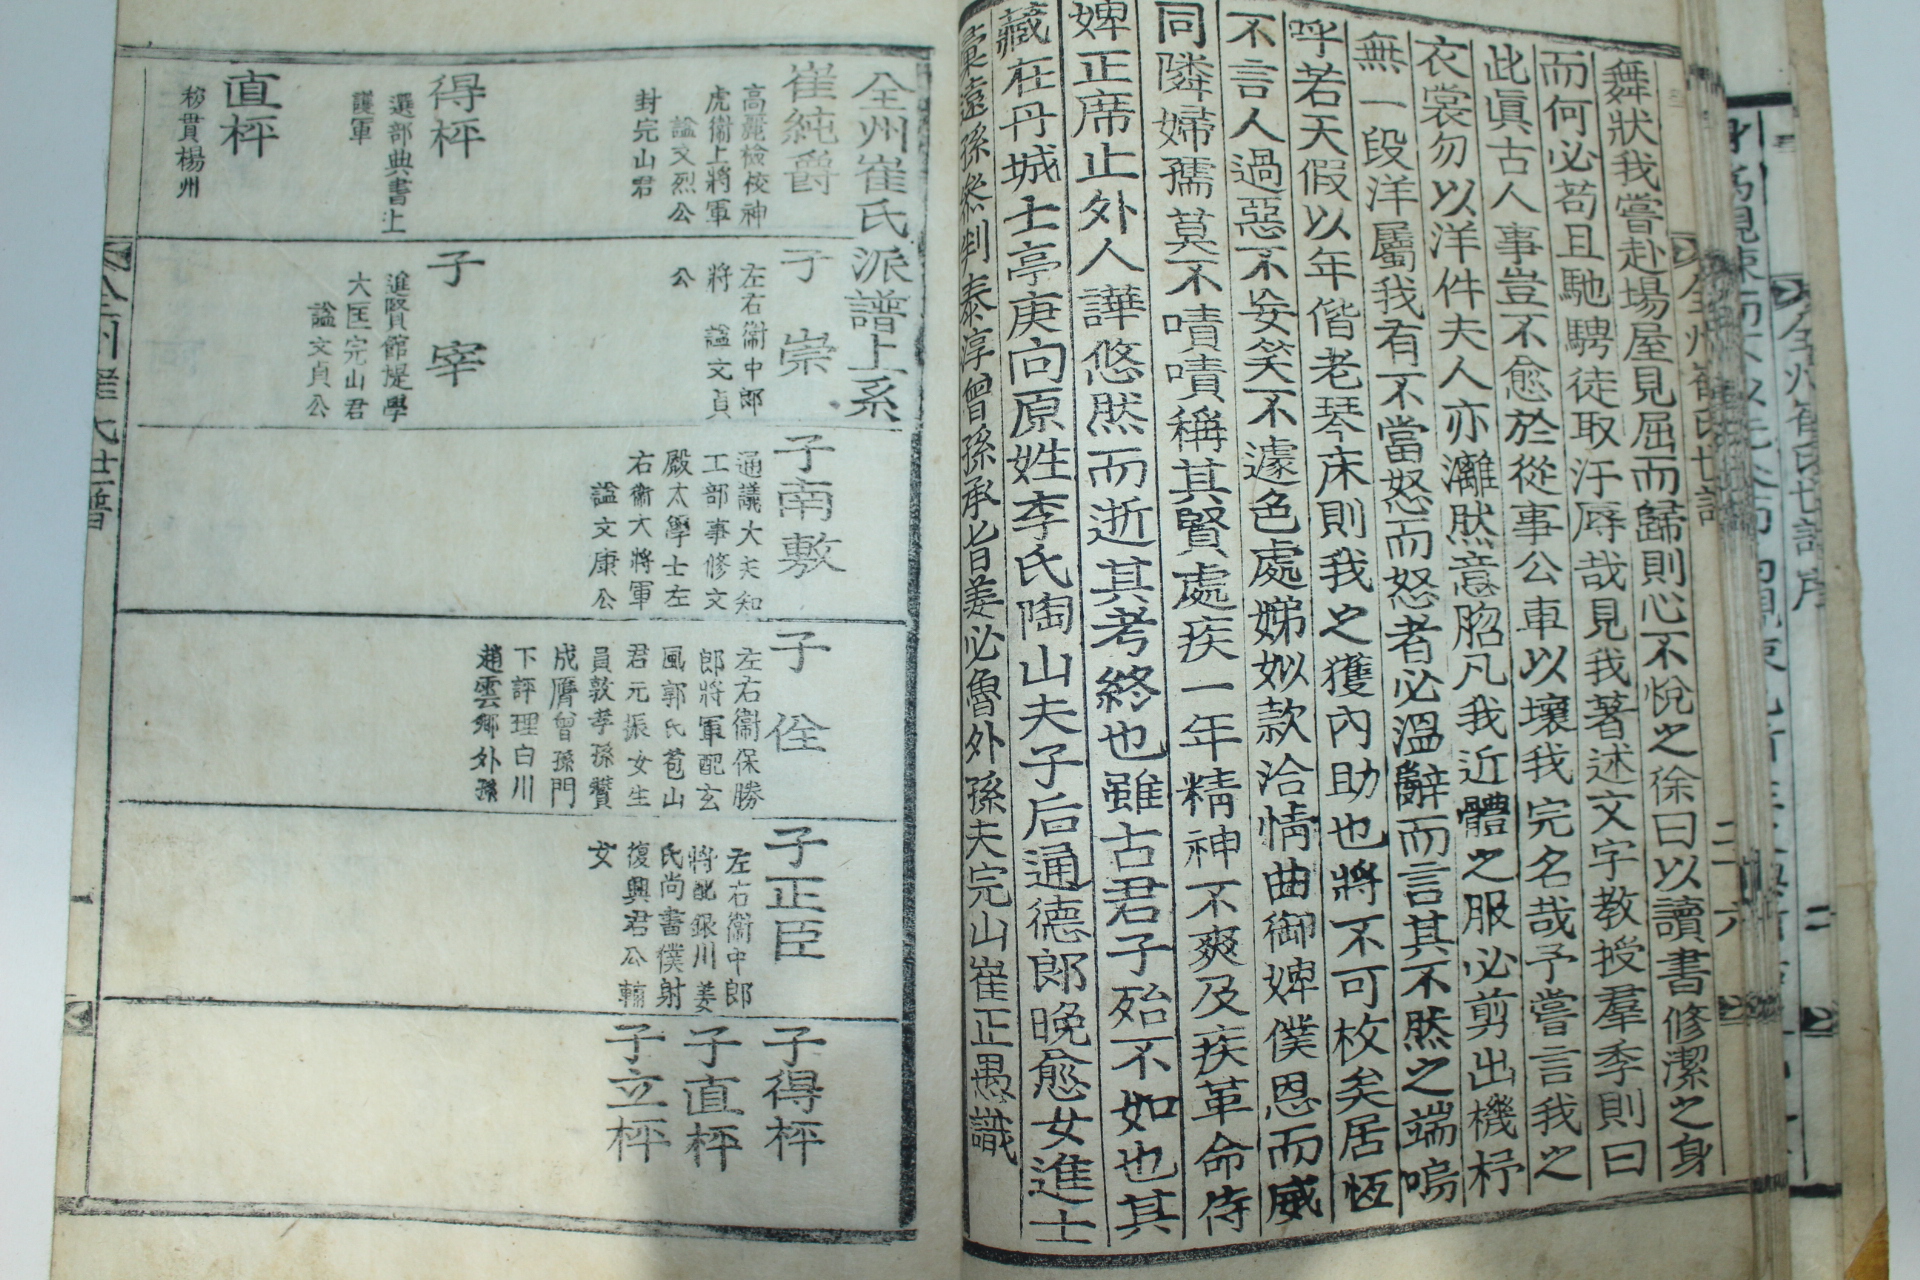 舞狀我嘗赴場屋見屈而歸則心不悅之徐曰以讀書修潔之身
而何必苟且馳騁徒取汙辱哉見我著述文字教授羣季則曰
此眞古人事豈不愈於從事公車以壞我完名哉予嘗言我之
衣裳勿以洋件夫人亦灕然意脗凡我近體之服必剪出機杼
無一段洋屬我有不當怒而怒者必溫辭而言其不然之端嗚
呼若天假以年偕老琴床則我之獲內助也將不可枚矣居恆
不言人過惡不妄笑不遽色處娣姒款洽情曲御婢僕恩而威
同隣婦孺莫不嘖嘖稱其賢處疾一年精神不爽及疾革命侍
婢正席止外人譁悠然而逝其考終也雖古君子殆不如也其
藏在丹城士亭庚向原姓李氏陶山夫子后通德郎晚愈女進士
遠孫判泰淳曾孫承旨姜必魯外孫夫完山崔正愚識
全州崔氏派譜上系
崔純爵
高麗檢校神
虎衛上將軍
諡文烈公
封完山君
得枰
選部典書上
護軍
直枰
移貫楊州
子崇
左右衛中郎
將 諡文貞
公
子宰
進賢館提學
大匡完山君
諡文貞公
子南敷
通議大夫知
工部事修文
殿太學士左
右衛大將軍
諡文康公
子佺
左右衛保勝
郎將軍配玄
風郭氏苞山
君元振女生
員敦孝孫贊
成膺曾孫門
下評理白川
趙雲鄉外孫
子正臣
左右衛中郎
將配銀川姜
氏尚書僕射
復興君公輔
女
子得枰
子直枰
子立枰
全州崔氏世譜